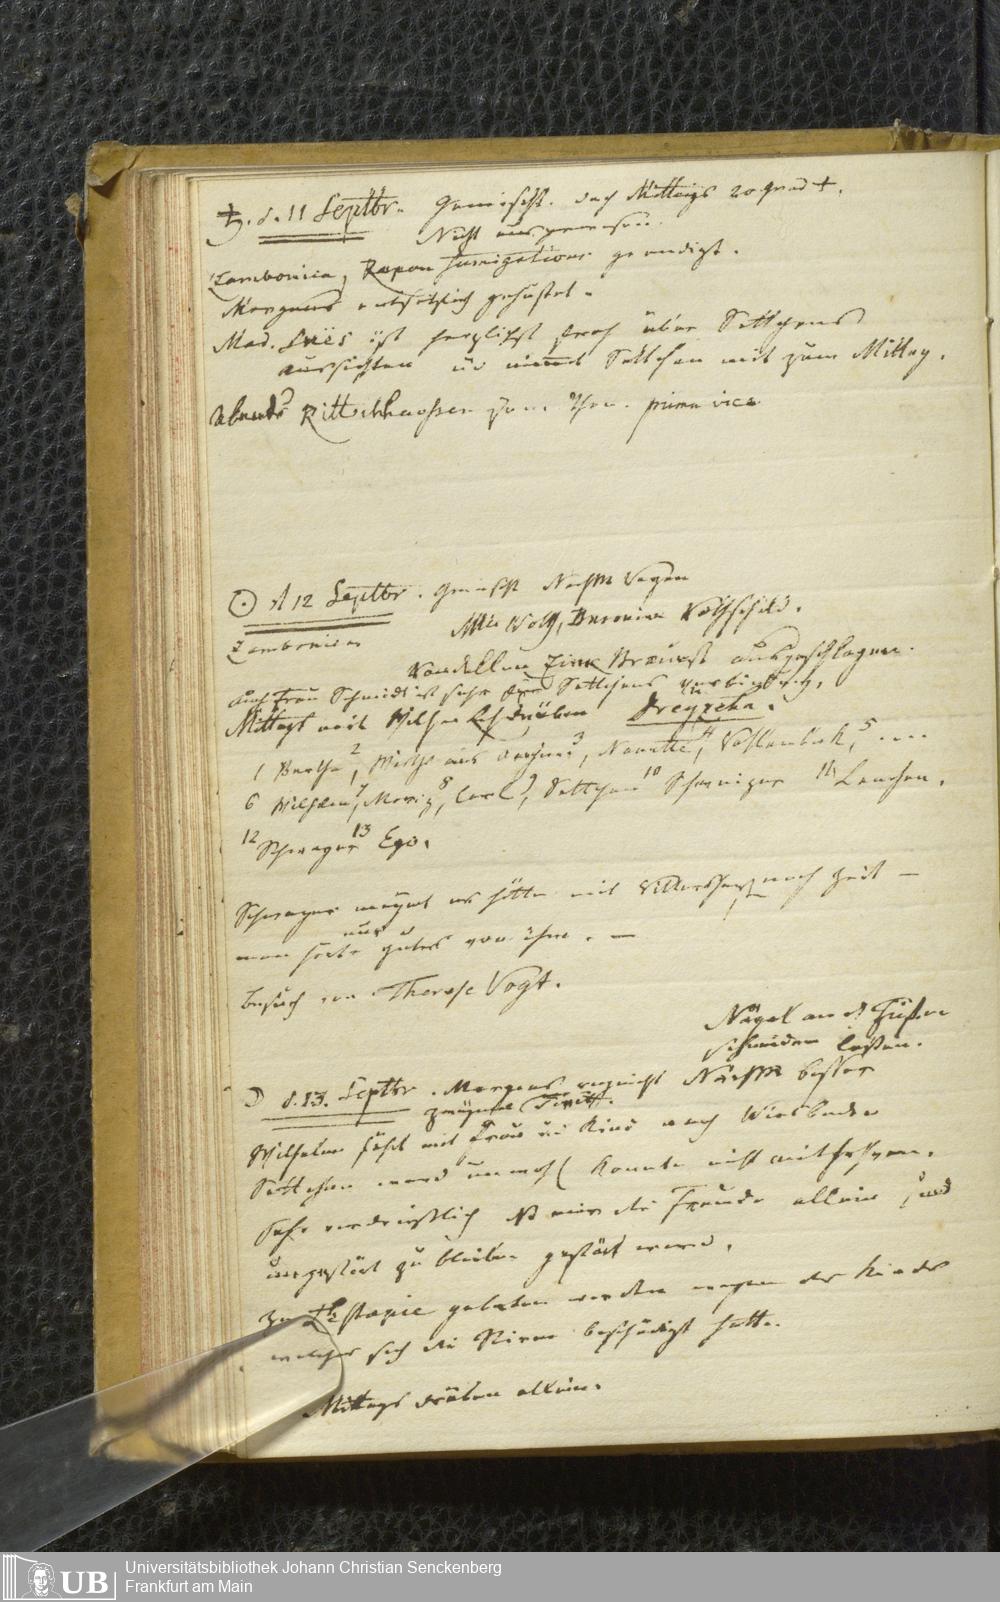 ♄. d. 11 Septbr. Gemischt. doch Mittags 20 grad +.
Nicht ausgewesen.
Zambonica, Rapou Fumigationen geendigt.
Morgens entsetzlich gehustet.
Mad. ist herzlichst froh über Settchens
Aussichten u nimmt Settchen mit zum Mittag.
Abends Rittershausen zum Thee. prima vice
☉ d 12 Septbr. Gemischt Nachm Regen
Zambonica
Mlle Wolf, Baronin Rothschild.
Eine Braut ausgeschlagen.
auch Frau Schmidt ist sehr für Settchens Verbindung.
Mittags mit Wilhelm drüben Dreyzehn.
1 Bertha, 2 aus 3, Nanette 4, 5
6 Wilhelm, 7 Moriz, 8 Carl, 9 Settchen 10 Schwieger 11 Lenchen.
12 Schwager 13 Ego.
Schwager meynt es hätte mit Rittershaus noch Zeit —
man hörte nur gutes von ihm. —
Besuch von Therese Vogt.
Nägel an d Füßen
schneiden lassen.
☽ d. 13. Septbr. Morgens Nachm besser
Wilhelm fährt mit Frau u Kind nach Wiesbaden
Settchen ward unwohl konnte nicht mitfahren.
Sehr verdrießlich daß mir die Freude allein und
ungestört zu bleiben gestört ward.
Zu gebeten worden wegen des Kindes
welches sich die Stirne beschädigt hatte.
Mittags drüben allein.
Universitätsbibliothek Johann Christian Senckenberg
Frankfurt am Main
UB